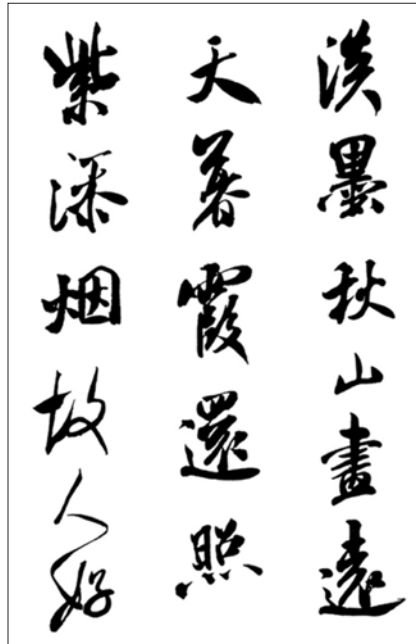 淡墨秋山畫遠
天暮霞還照
紫添烟故人好